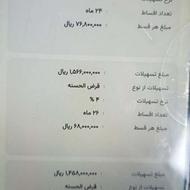 نرخ تسهیلات :
تعداد اقساط : ۲۴ ماه
مبلغ هر قسط : ۷۶,۸۰۰,۰۰۰ ریال
مبلغ تسهیلات : ۱,۵۶۶,۰۰۰,۰۰۰ ریال
تسهیلات از نوع : قرض الحسنه
نرخ تسهیلات : ۴ %
تعداد اقساط : ۲۶ ماه
مبلغ هر قسط : ۶۸,۰۰۰,۰۰۰ ریال
مبلغ تسهیلات : ۱,۴۵۸,۰۰۰,۰۰۰ ریال
تسهیلات از نوع : قرض الحسنه